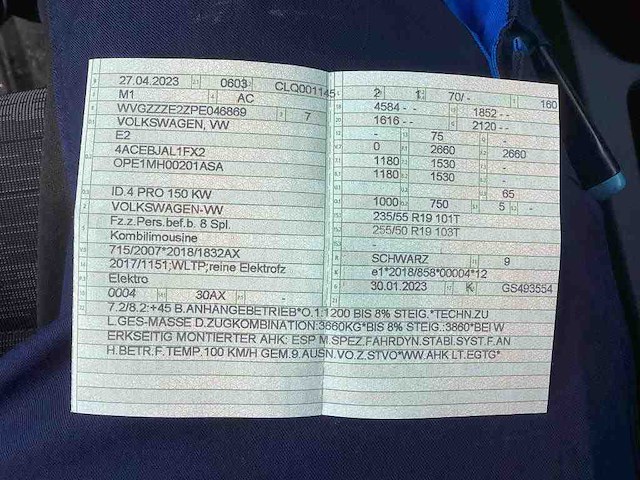 27.04.2023 0603 CLQ001145
M1 AC
WVGZZZE2ZPE046869 7
VOLKSWAGEN, VW
E2
4ACEBJAL1FX2
OPE1MH00201ASA
ID.4 PRO 150 KW
VOLKSWAGEN-VW
Fz.z.Pers.bef.b. 8 Spl.
Kombilimousine
715/2007*2018/1832AX
2017/1151;WLTP;reine Elektrofz
Elektro
0004 30AX -
2 1 70/- 160
4584 - - 1852 - -
1616 - - 2120 - -
- 75 -
0 2660 2660
1180 1530 -
1180 1530 -
- - 65
1000 750 5 -
235/55 R19 101T
255/50 R19 103T
-
SCHWARZ 9
e1*2018/858*00004*12
30.01.2023 K GS493554
7.2/8.2:+45 B.ANHÄNGEBETRIEB*O.1:1200 BIS 8% STEIG.*TECHN.ZU
L.GES-MASSE D.ZUGKOMBINATION:3860KG*BIS 8% STEIG.:3860*BEI W
ERKSEITIG MONTIERTER AHK: ESP M.SPEZ.FAHRDYN.STABI.SYST.F.AN
H.BETR.F.TEMP.100 KM/H GEM.9.AUSN.VO.Z.STVO*WW.AHK LT.EGTG*